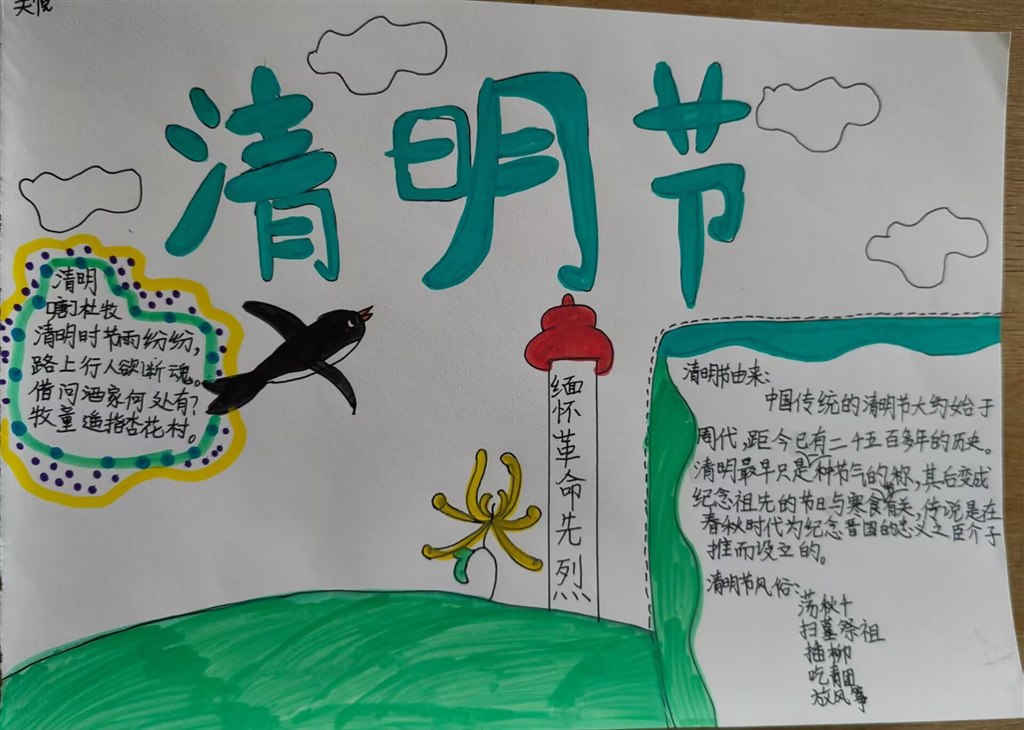 天悦
清明节
清明
[唐]杜牧
清明时节雨纷纷,
路上行人欲断魂。
借问酒家何处有?
牧童遥指杏花村。
缅怀革命先烈
清明节由来:
中国传统的清明节大约始于
周代,距今已有二千五百多年的历史。
清明最早只是一种节气的名称,其后变成
纪念祖先的节日与寒食节有关,传说是在
春秋时代为纪念晋国的忠义之臣介子
推而设立的。
清明节风俗:
荡秋千
扫墓祭祖
插柳
吃青团
放风筝